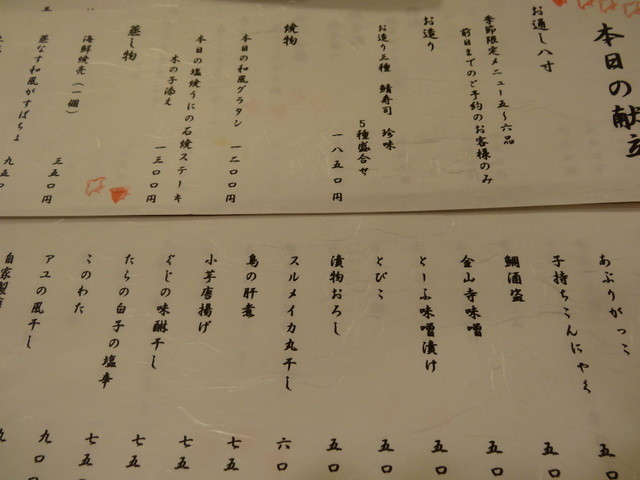 本日の献立
お通し八寸
季節限定メニュー五〜六品
前日までのご予約のお客様のみ
お造り
お造り三種 鯖寿司 珍味
5種盛合せ
一八五〇円
焼物
本日の和風グラタン 一二〇〇円
本日の塩焼うにの石焼ステーキ
木の子添え 一三〇〇円
蒸し物
海鮮焼売(一個) 三五〇円
蒸なす和風がすぱちょ 九五〇
あぶりがっこ 五〇
子持ちこんにゃく 五〇
鯛酒盗 五〇
金山寺味噌 五〇
とーふ味噌漬け 五〇
とびこ 五〇
漬物おろし 五〇
スルメイカ丸干し 六〇
鳥の肝煮 七五
小芋唐揚げ 七五
ぐじの味醂干し 七五
たらの白子の塩辛 七五
このわた 七五
アユの風干し 九〇
自家製